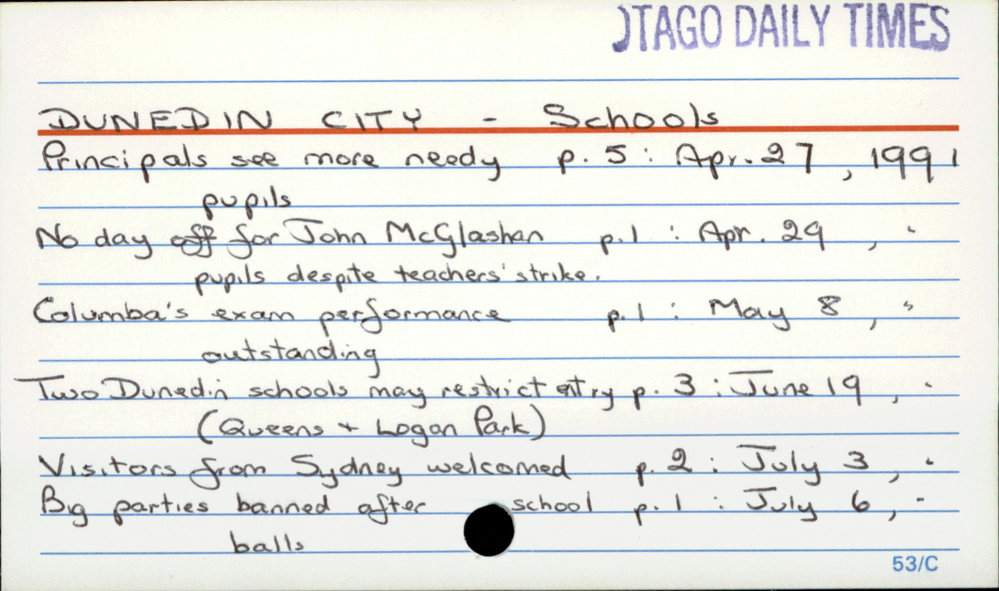 OTAGO DAILY TIMES
DUNEDIN CITY - Schools
Principals see more needy p. 5 : Apr. 27, 1991
pupils
No day off for John McGlashan p.1 : Apr. 29, "
pupils despite teachers' strike.
Columba's exam performance p.1 : May 8, "
outstanding
Two Dunedin schools may restrict etry p. 3 : June 19, "
(Queens + Logan Park)
Visitors from Sydney welcomed p. 2 : July 3, "
Big parties banned after school p. 1 : July 6, "
balls
53/C